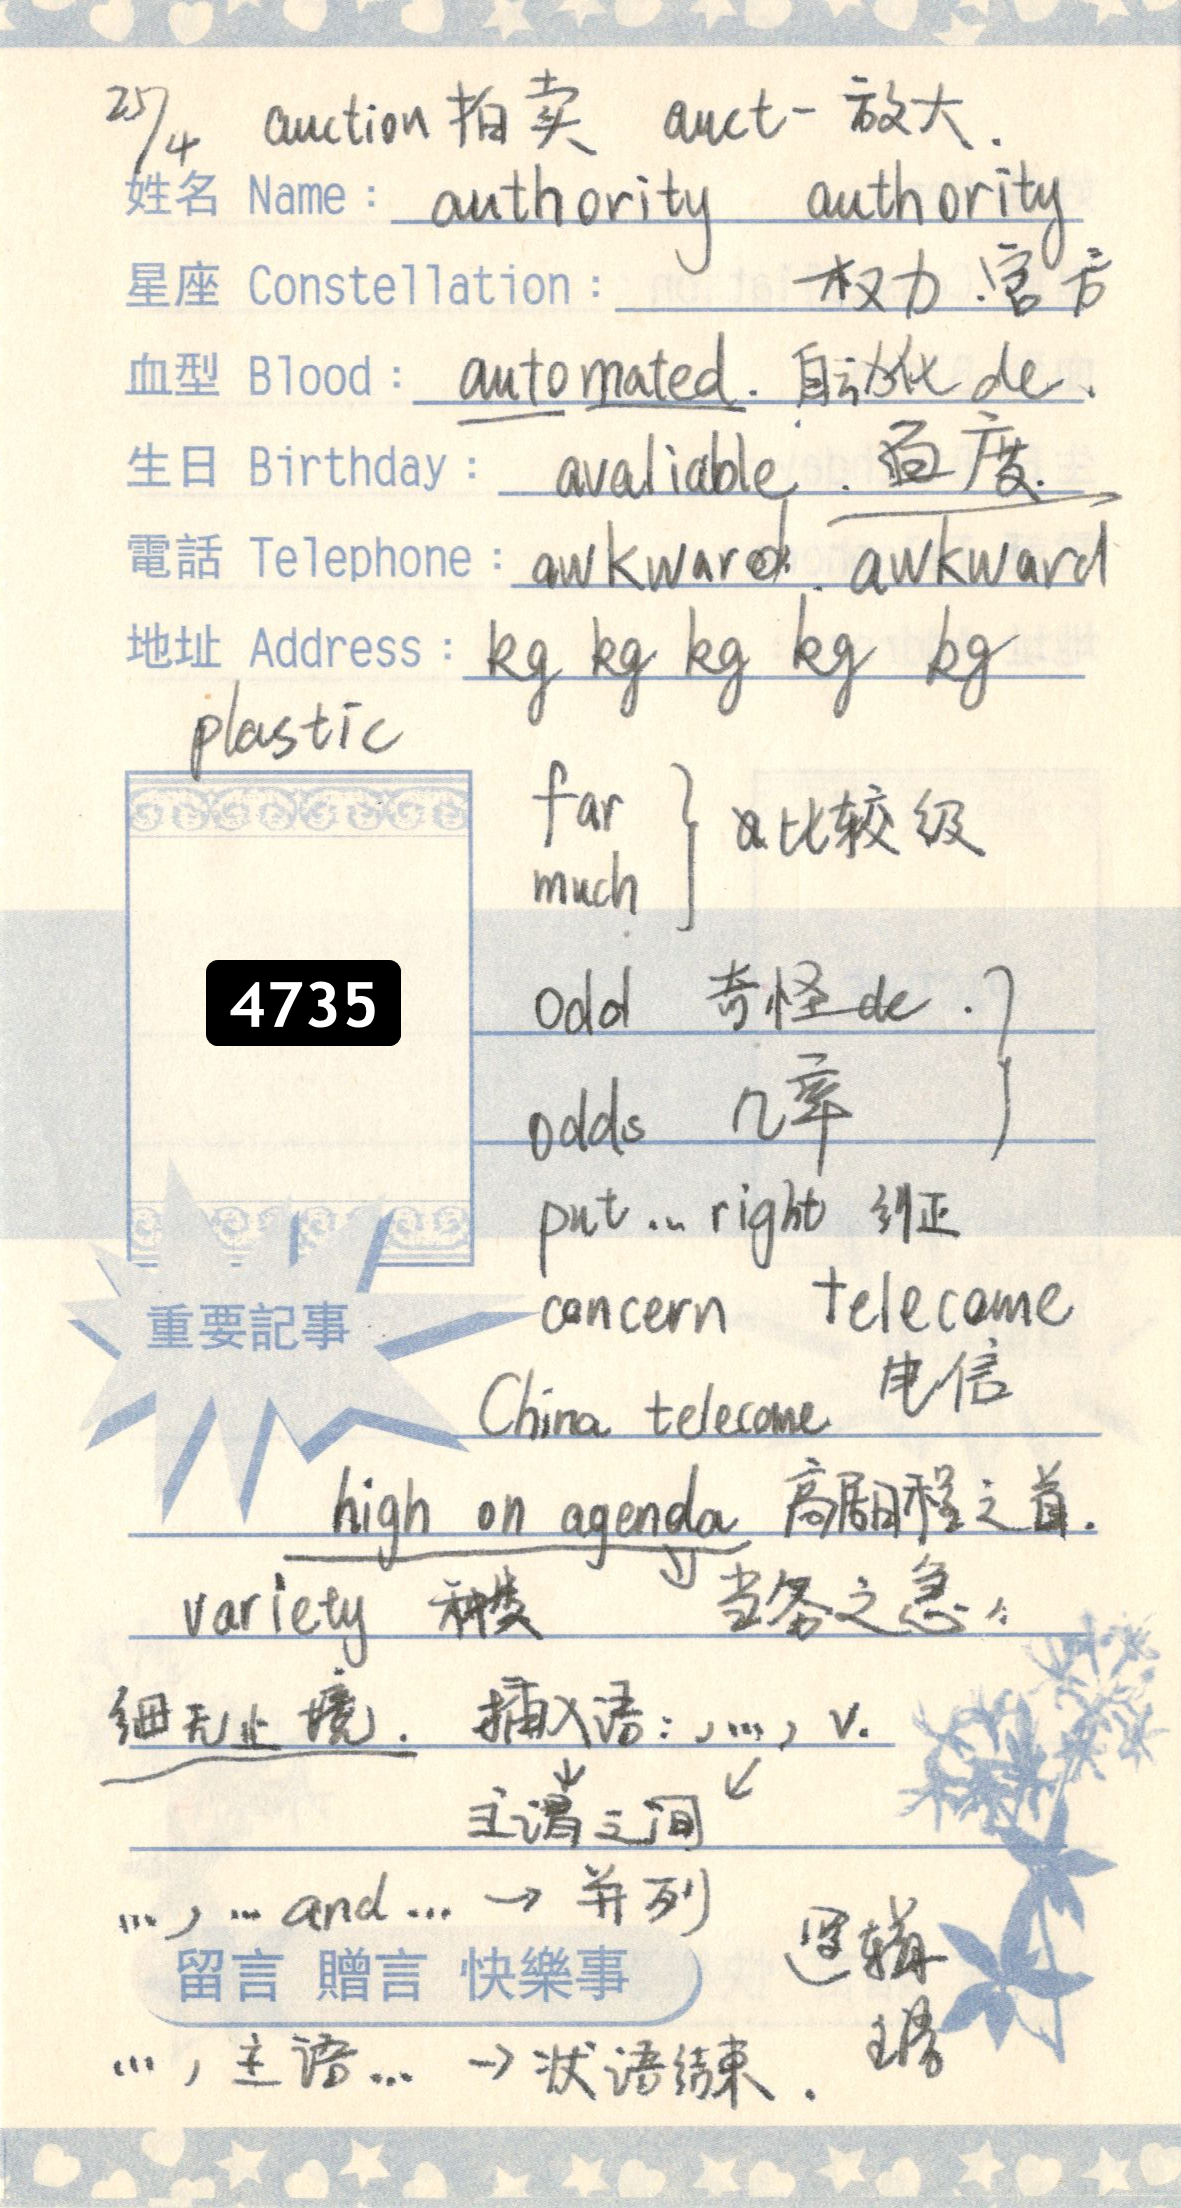 25/4 auction 拍卖 auct- 放大.
姓名 Name: authority authority
星座 Constellation: 权力.官方
血型 Blood: automated. 自动化 de.
生日 Birthday: avaliable. 百度.
電話 Telephone: awkward. awkward
地址 Address: kg kg kg kg kg
plastic
far
much } 比较级
odd 奇怪 de.
odds 几率
put ... right 纠正
concern telecome
重要記事
China telecome 电信
high on agenda 高居日程之首.
variety 种类 当务之急
细无止境. 插入语: , ..., v.
主谓之间
..., ... and ... → 并列
逻辑
留言 贈言 快樂事
主语
..., 主语... → 状语结束.
4735